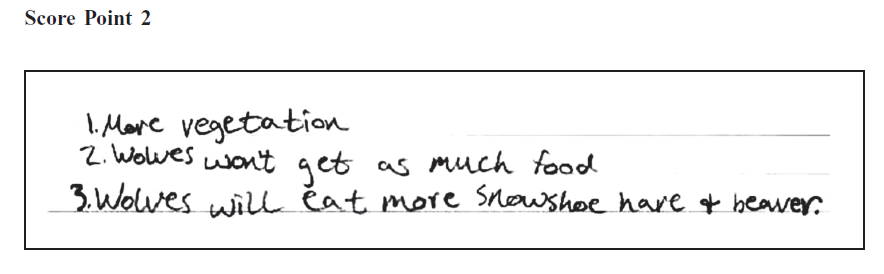 Score Point 2
1. More vegetation
2. Wolves won't get as much food
3. Wolves will eat more snowshoe hare + beaver.